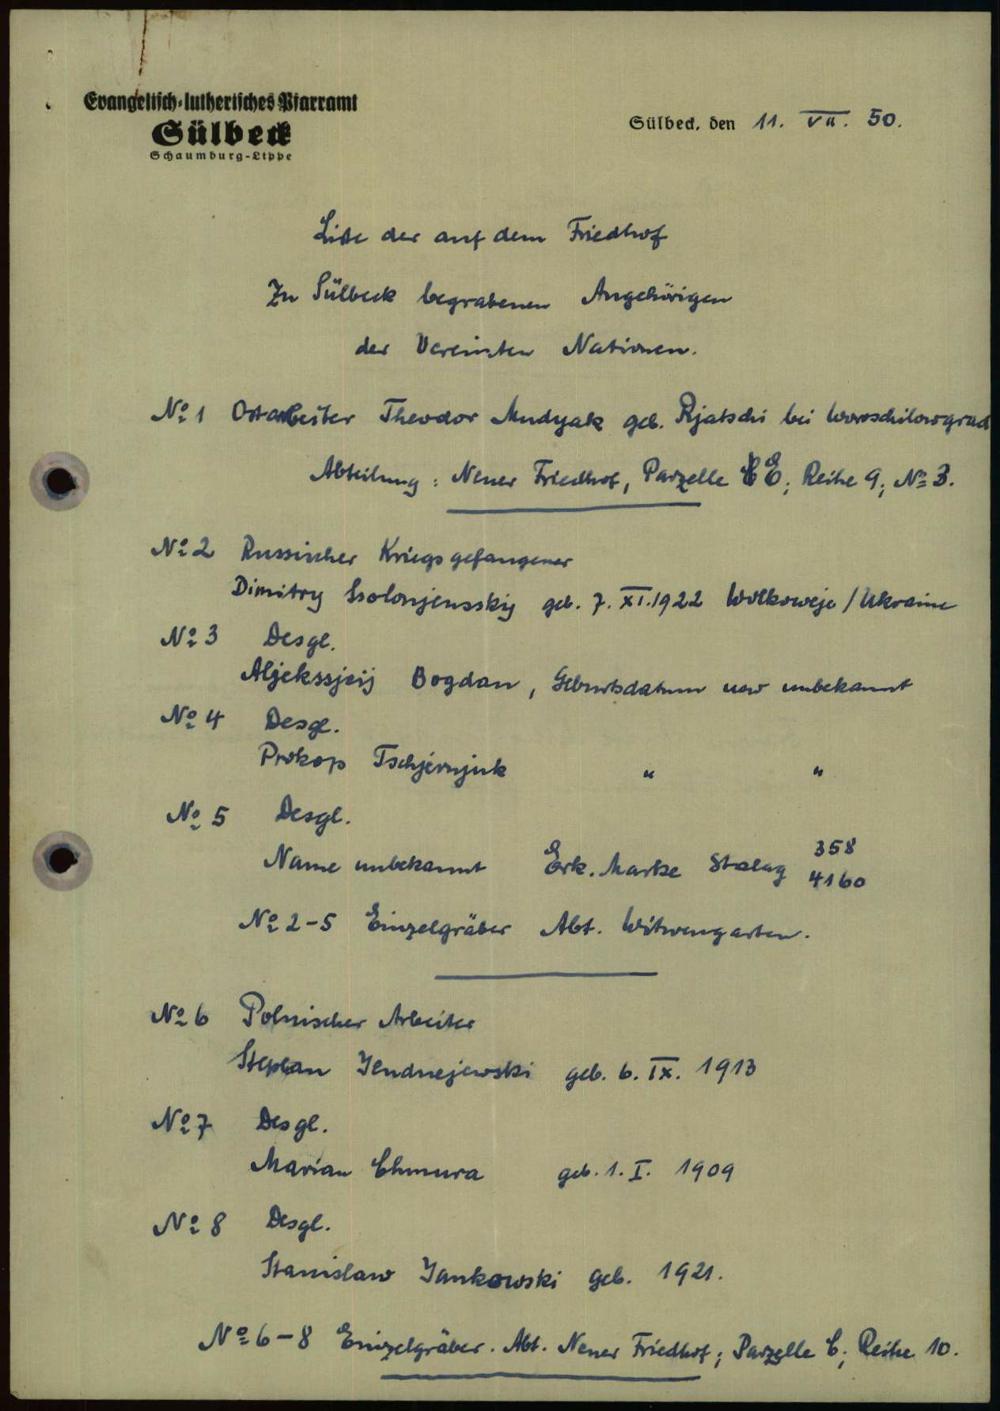 Evangelisch-lutherisches Pfarramt
Sülbeck
Schaumburg-Lippe
Sülbeck, den 11. VII. 50.
Liste der auf dem Friedhof
Zu Sülbeck begrabenen Angehörigen
der Vereinten Nationen.
No 1 Ostarbeiter Theodor Mudyak geb. Rjatschi bei Woroschilowgrad
Abteilung: Neuer Friedhof, Parzelle E; Reihe 9; No 3.
No 2 Russischer Kriegsgefangener
Dimitry Ssolonjensskij geb. 7. XI. 1922 Wolkoweje / Ukraine
No 3 Desgl.
Aljekssjeij Bogdan, Geburtsdatum usw unbekannt
No 4 Desgl.
Prokop Tschjernjuk " "
No 5 Desgl.
Name unbekannt Erk. Marke Stalag 358
4160
No 2-5 Einzelgräber Abt. Witwengarten.
No 6 Polnischer Arbeiter
Stephan Jendnejewski geb. 6. IX. 1913
No 7 Desgl.
Marian Chmura geb. 1. I. 1909
No 8 Desgl.
Stanislaw Jankowski geb. 1921.
No 6-8 Einzelgräber. Abt. Neuer Friedhof; Parzelle C; Reihe 10.